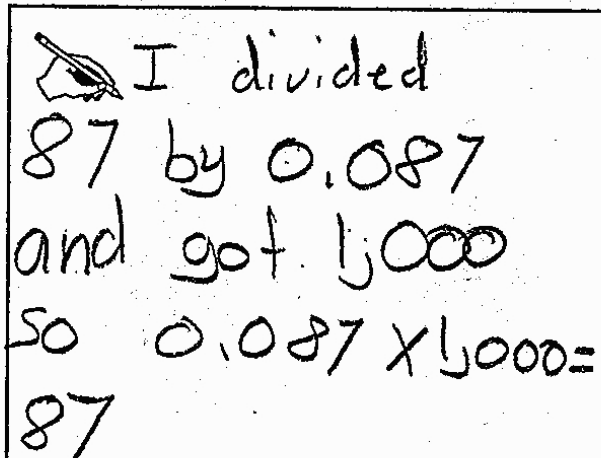 I divided
87 by 0.087
and got 1,000
so 0.087 x 1,000=
87